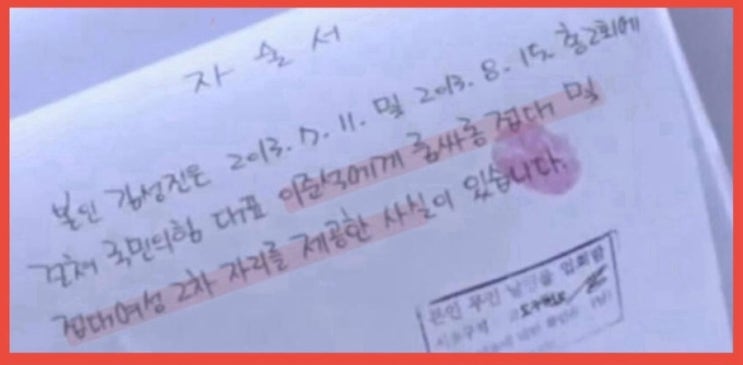 자술서
본인 김성진은 2013. 7. 11. 및 2013. 8. 15. 총2회에
걸쳐 국민의힘 대표 이준석에게 룸싸롱 접대 및
접대여성 2차 자리를 제공한 사실이 있습니다.
본인 무인 날인을 입회함